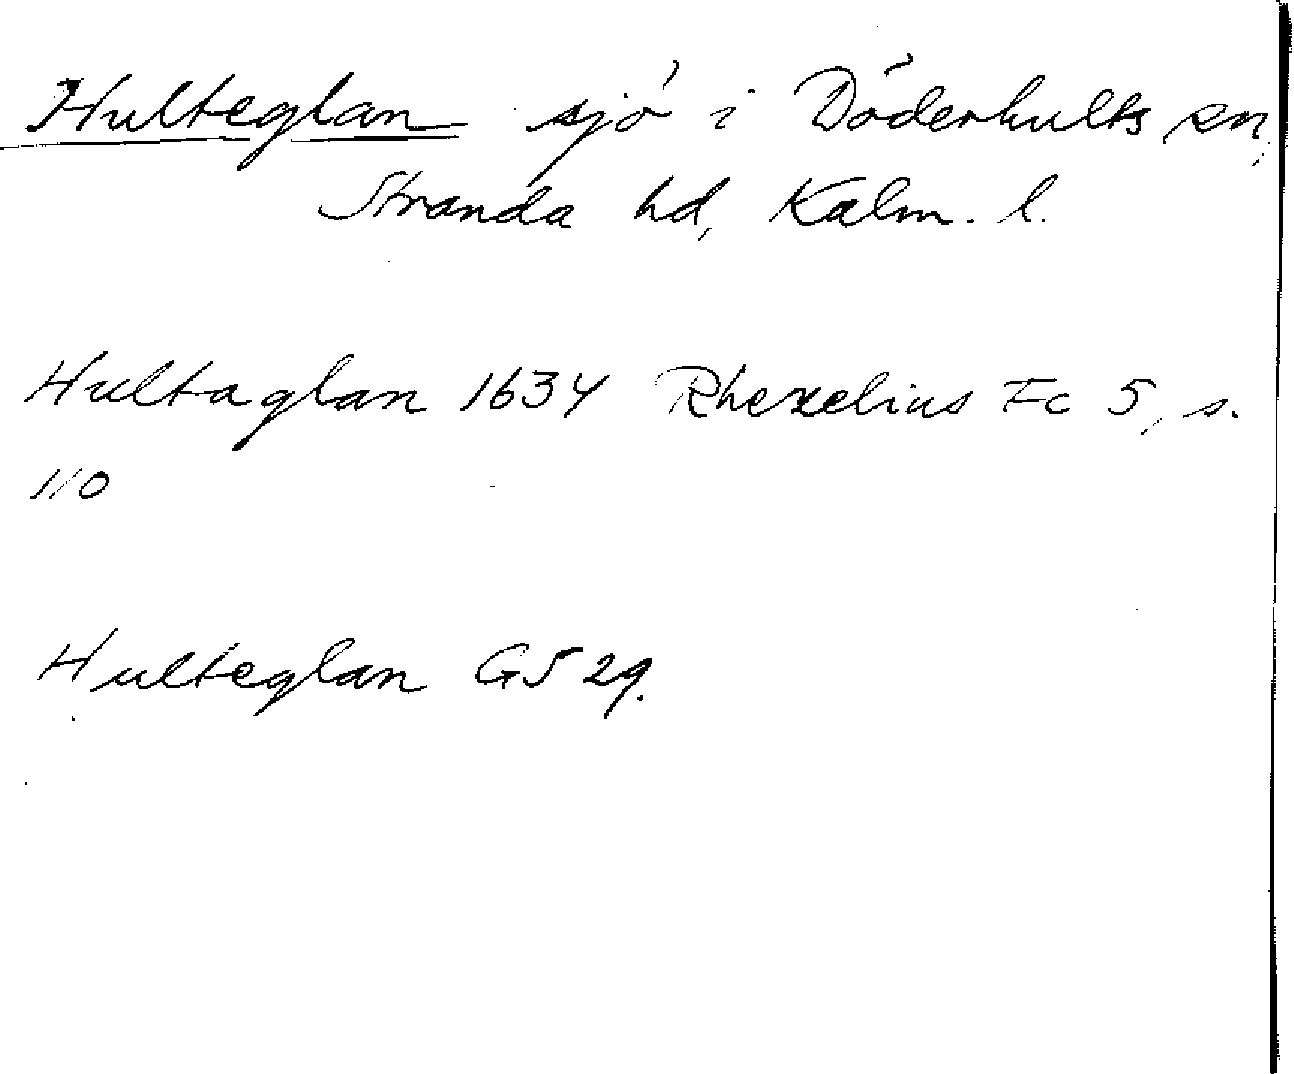 Hulteglan sjö i Döderhults sn,
Stranda hd, Kalm. l.
Hultaglan 1634 Rhezelius Fc 5, s.
110
Hulteglan GS 29.